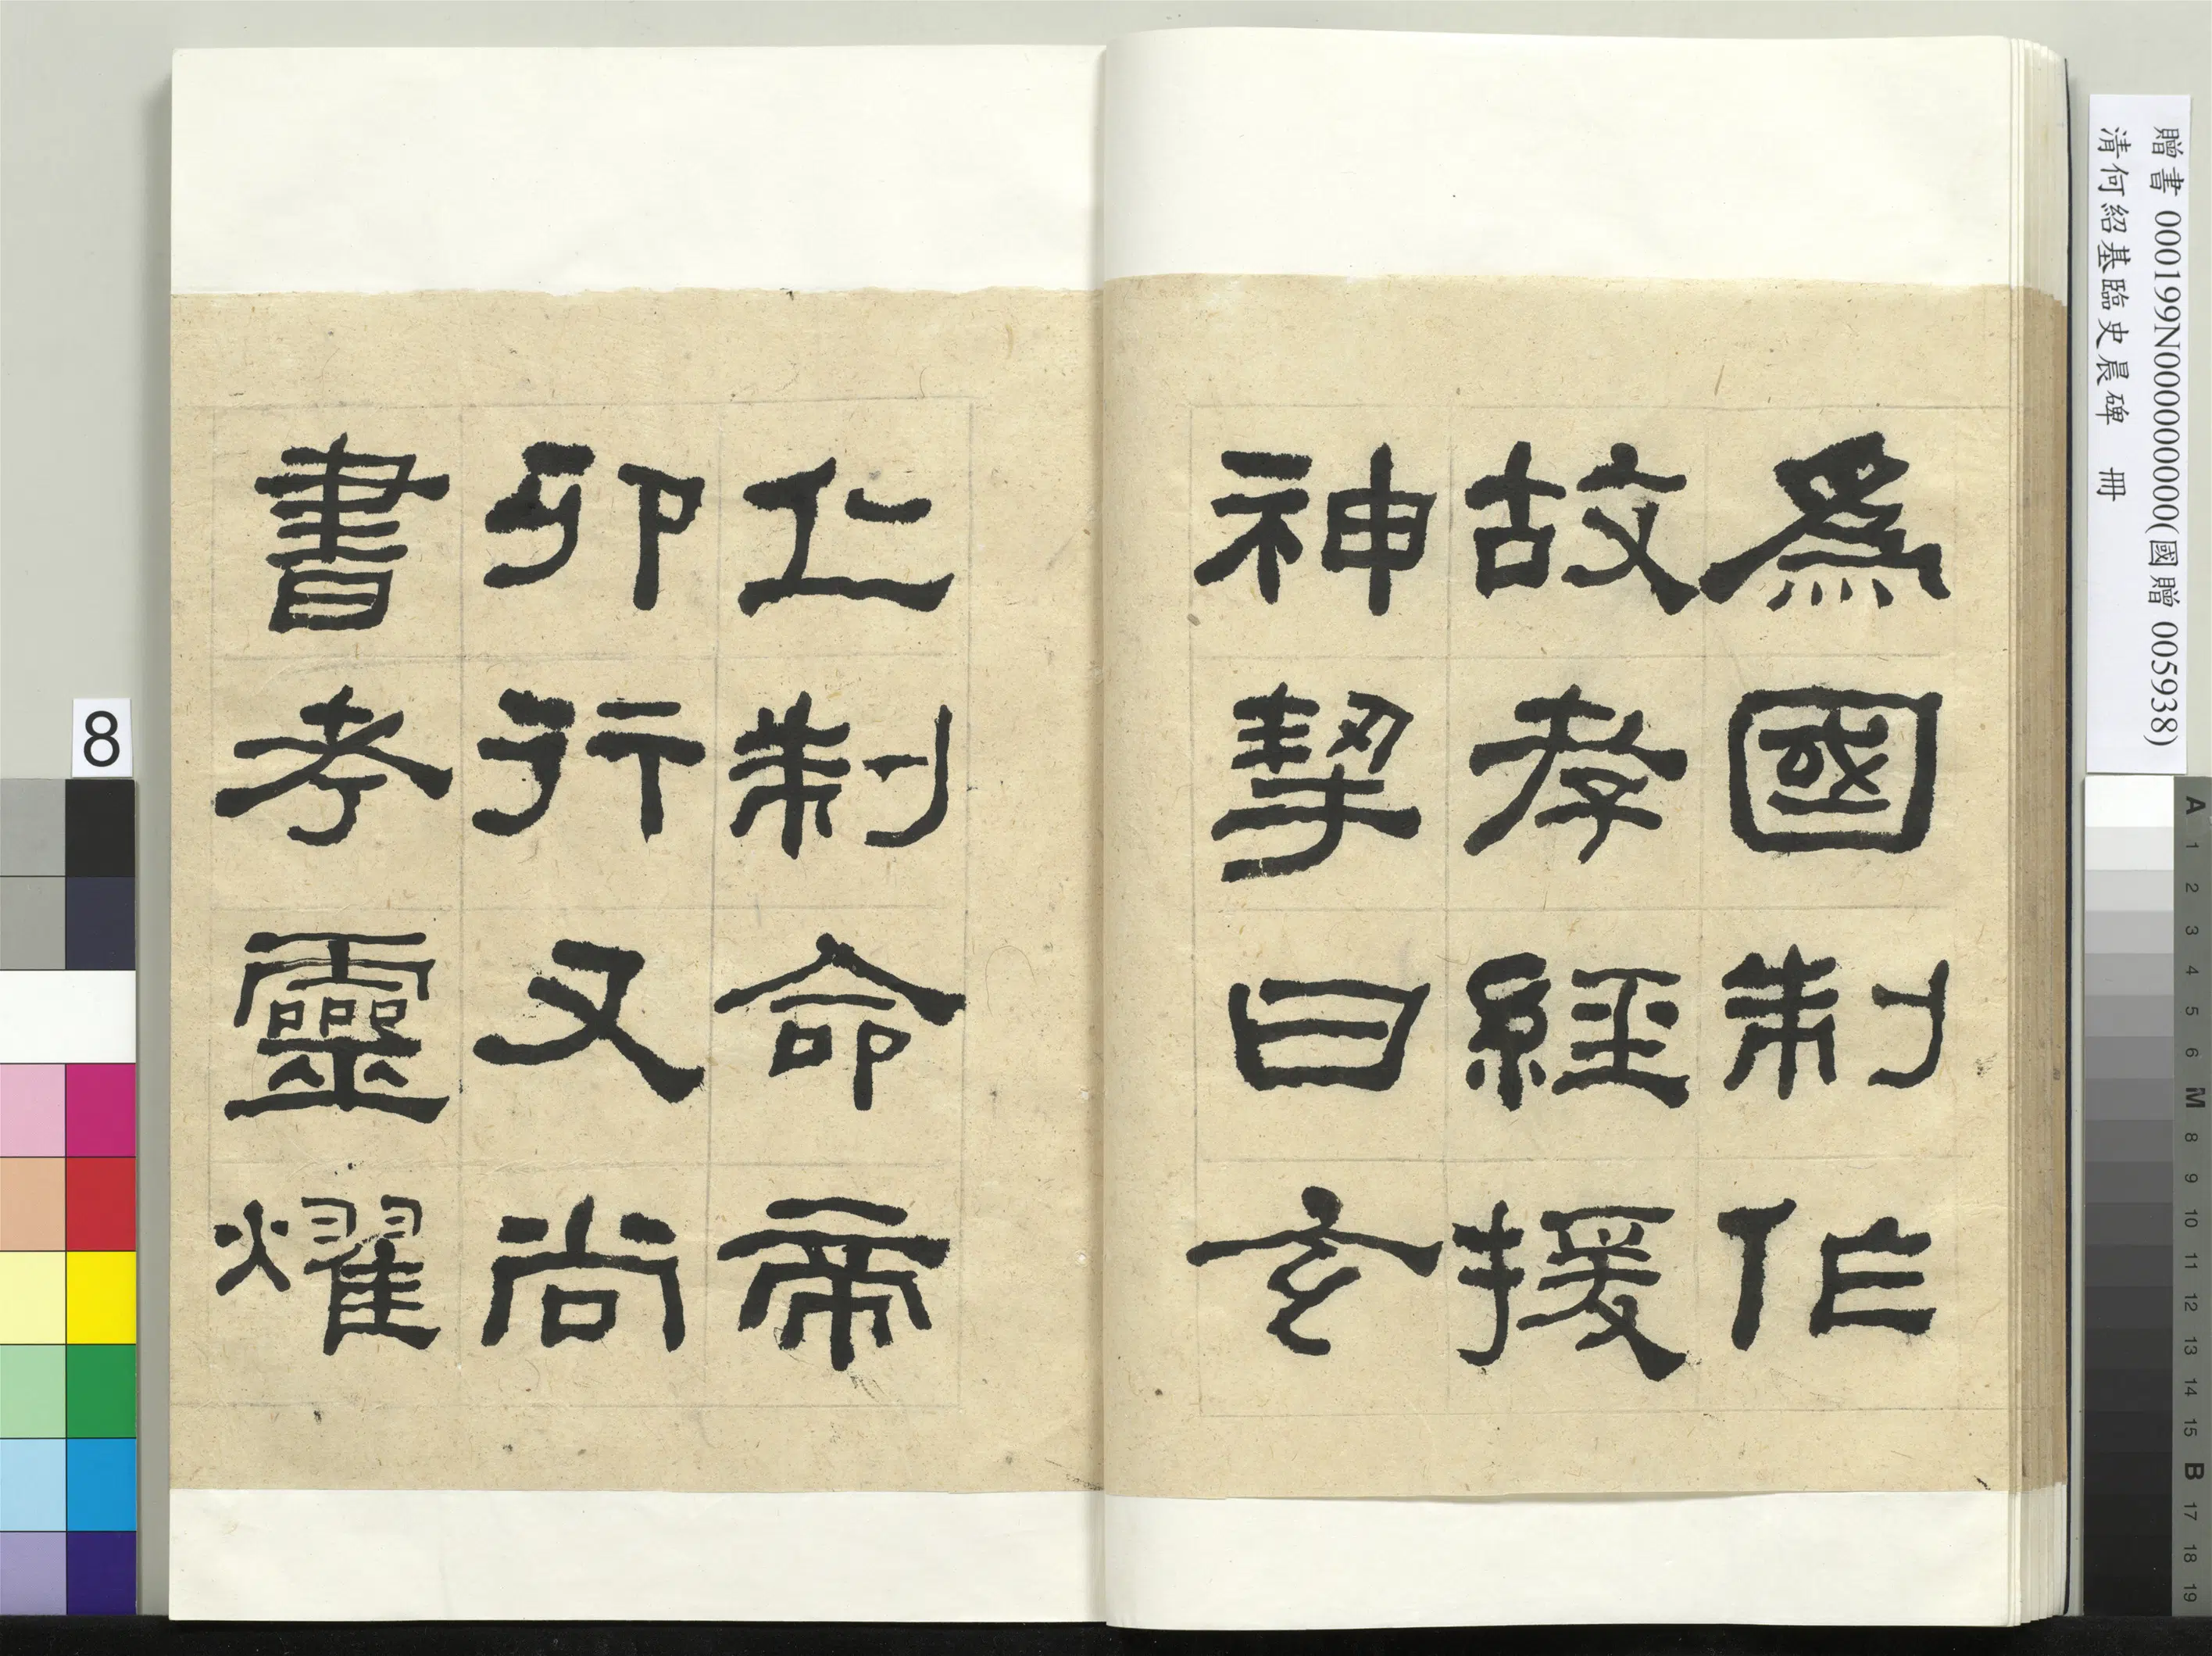 為國制作
故孝經援
神挈曰玄
仁制命帝
卯行又尚
書考靈燿
贈書 000199N000000000(國贈 005938)
清何紹基臨史晨碑 冊
8
A 1 2 3 4 5 6 M 8 9 10 11 12 13 14 15 B 17 18 19